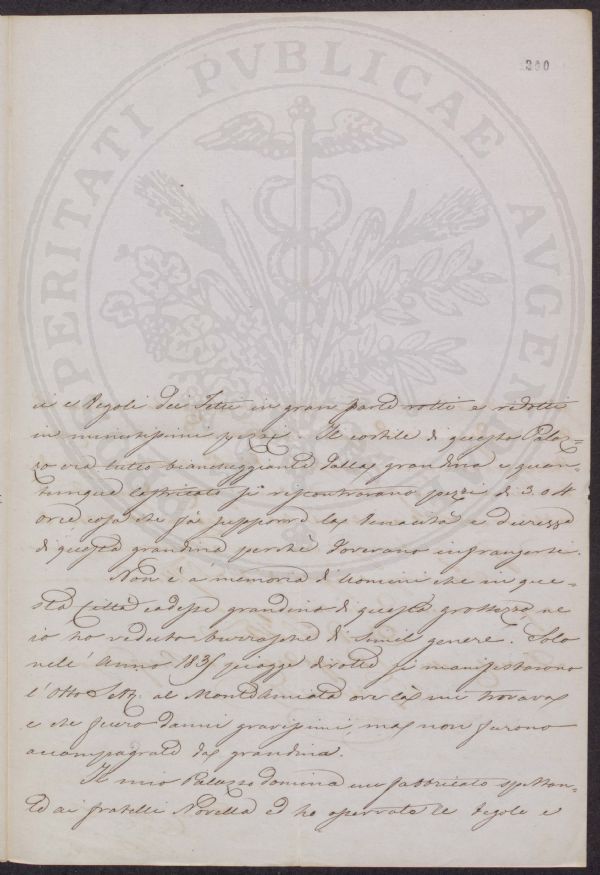 300
PROSPERITATI PVBLICAE AVGENDAE
ci e Tegoli dei Tetti in gran parte rotti e ridotti
in minutissimi pezzi. Il cortile di questo Palaz=
zo era tutto biancheggiante dalla grandina e quan=
tunque lastricato si riscontravano pezzi di 3. o 4
once cosa che fà supporre la tenacità e durezza
di questa grandina perchè dovevano infrangersi.
Non è a memoria di Uomini che in que=
sta Città cadesse grandine di questa grossezza, ne
io ho veduto burrasche di simil genere. Solo
nell'Anno 183 piogge dirotte si manifestarono
l'Otto Sett. al MonteAmiata ove là mi trovava
e che fecero danni gravissimi, ma non furono
accompagnate da grandina.
Il mio Palazzo domina un fabbricato spettan=
te ai fratelli Novella ed ho osservate le tegole e